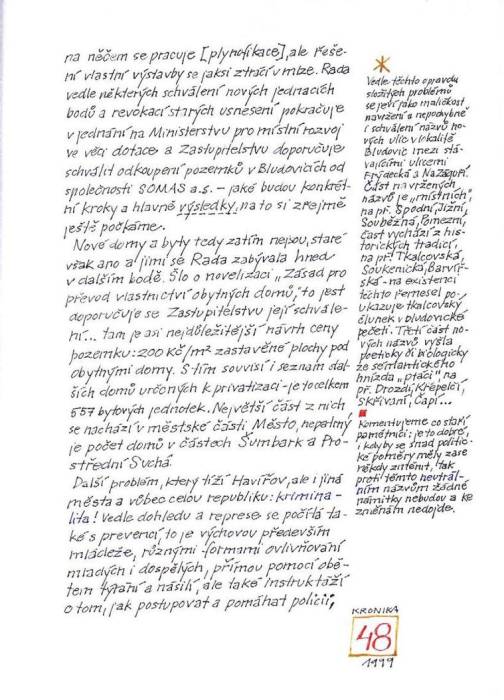 na něčem se pracuje [plynofikace], ale řeše-
ní vlastní výstavby se jaksi ztrácí v mlze. Rada
vedle některých schválení nových jednacích
bodů a revokací starých usnesení pokračuje
v jednání na Ministerstvu pro místní rozvoj
ve věci dotace a Zastupitelstvu doporučuje
schválit odkoupení pozemků v Bludovicích od
společnosti SOMAS a.s. – jaké budou konkrét-
ní kroky a hlavně výsledky, na to si zřejmě
ještě počkáme.
Nové domy a byty tedy zatím nejsou, staré
však ano a jimi se Rada zabývala hned
v dalším bodě. Šlo o novelizaci „Zásad pro
převod vlastnictví obytných domů“, to jest
doporučuje se Zastupitelstvu její schvále-
ní... tam je asi nejdůležitější návrh ceny
pozemku: 200 Kč/m² zastavěné plochy pod
obytnými domy. S tím souvisí i seznam dal-
ších domů určených k privatizaci – je to celkem
557 bytových jednotek. Největší část z nich
se nachází v městské části Město, nepatrný
je počet domů v částech Šumbark a Pro-
střední Suchá.
Další problém, který tíží Havířov, ale i jiná
města a vůbec celou republiku: krimina-
lita! Vedle dohledu a represe se počítá ta-
ké s prevencí, to je výchovou především
mládeže, různými formami ovlivňování
mladých i dospělých, přímou pomocí obě-
tem týrání a násilí, ale také instruktáží
o tom, jak postupovat a pomáhat policii,
Vedle těchto opravdu
složitých problémů
se jeví jako maličkost
navržení a nepochybně
i schválení názvů no-
vých ulic v lokalitě
Bludovic mezi stá-
vajícími ulicemi
Frýdecká a Na Záguří.
Část navržených
názvů je „místních“,
na př. Spodní, Jižní,
Souběžná, Pomezní,
část vychází z his-
torických tradicí,
na př. Tkalcovská,
Soukenická, Barvíř-
ská – na existenci
těchto řemesel po-
ukazuje tkalcovský
člunek v bludovické
pečeti. Třetí část no-
vých názvů vyšla
poeticky či biologicky
ze sémantického
hnízda „ptáci“ na
př. Drozdí, Křepelčí,
Skřívaní, Čapí...
Komentujeme co staří
pamětníci: je to dobré,
i kdyby se snad politic-
ké poměry měly zase
někdy změnit, tak
proti těmto neutrál-
ním názvům žádné
námitky nebudou a ke
změnám nedojde.
KRONIKA
48
1999